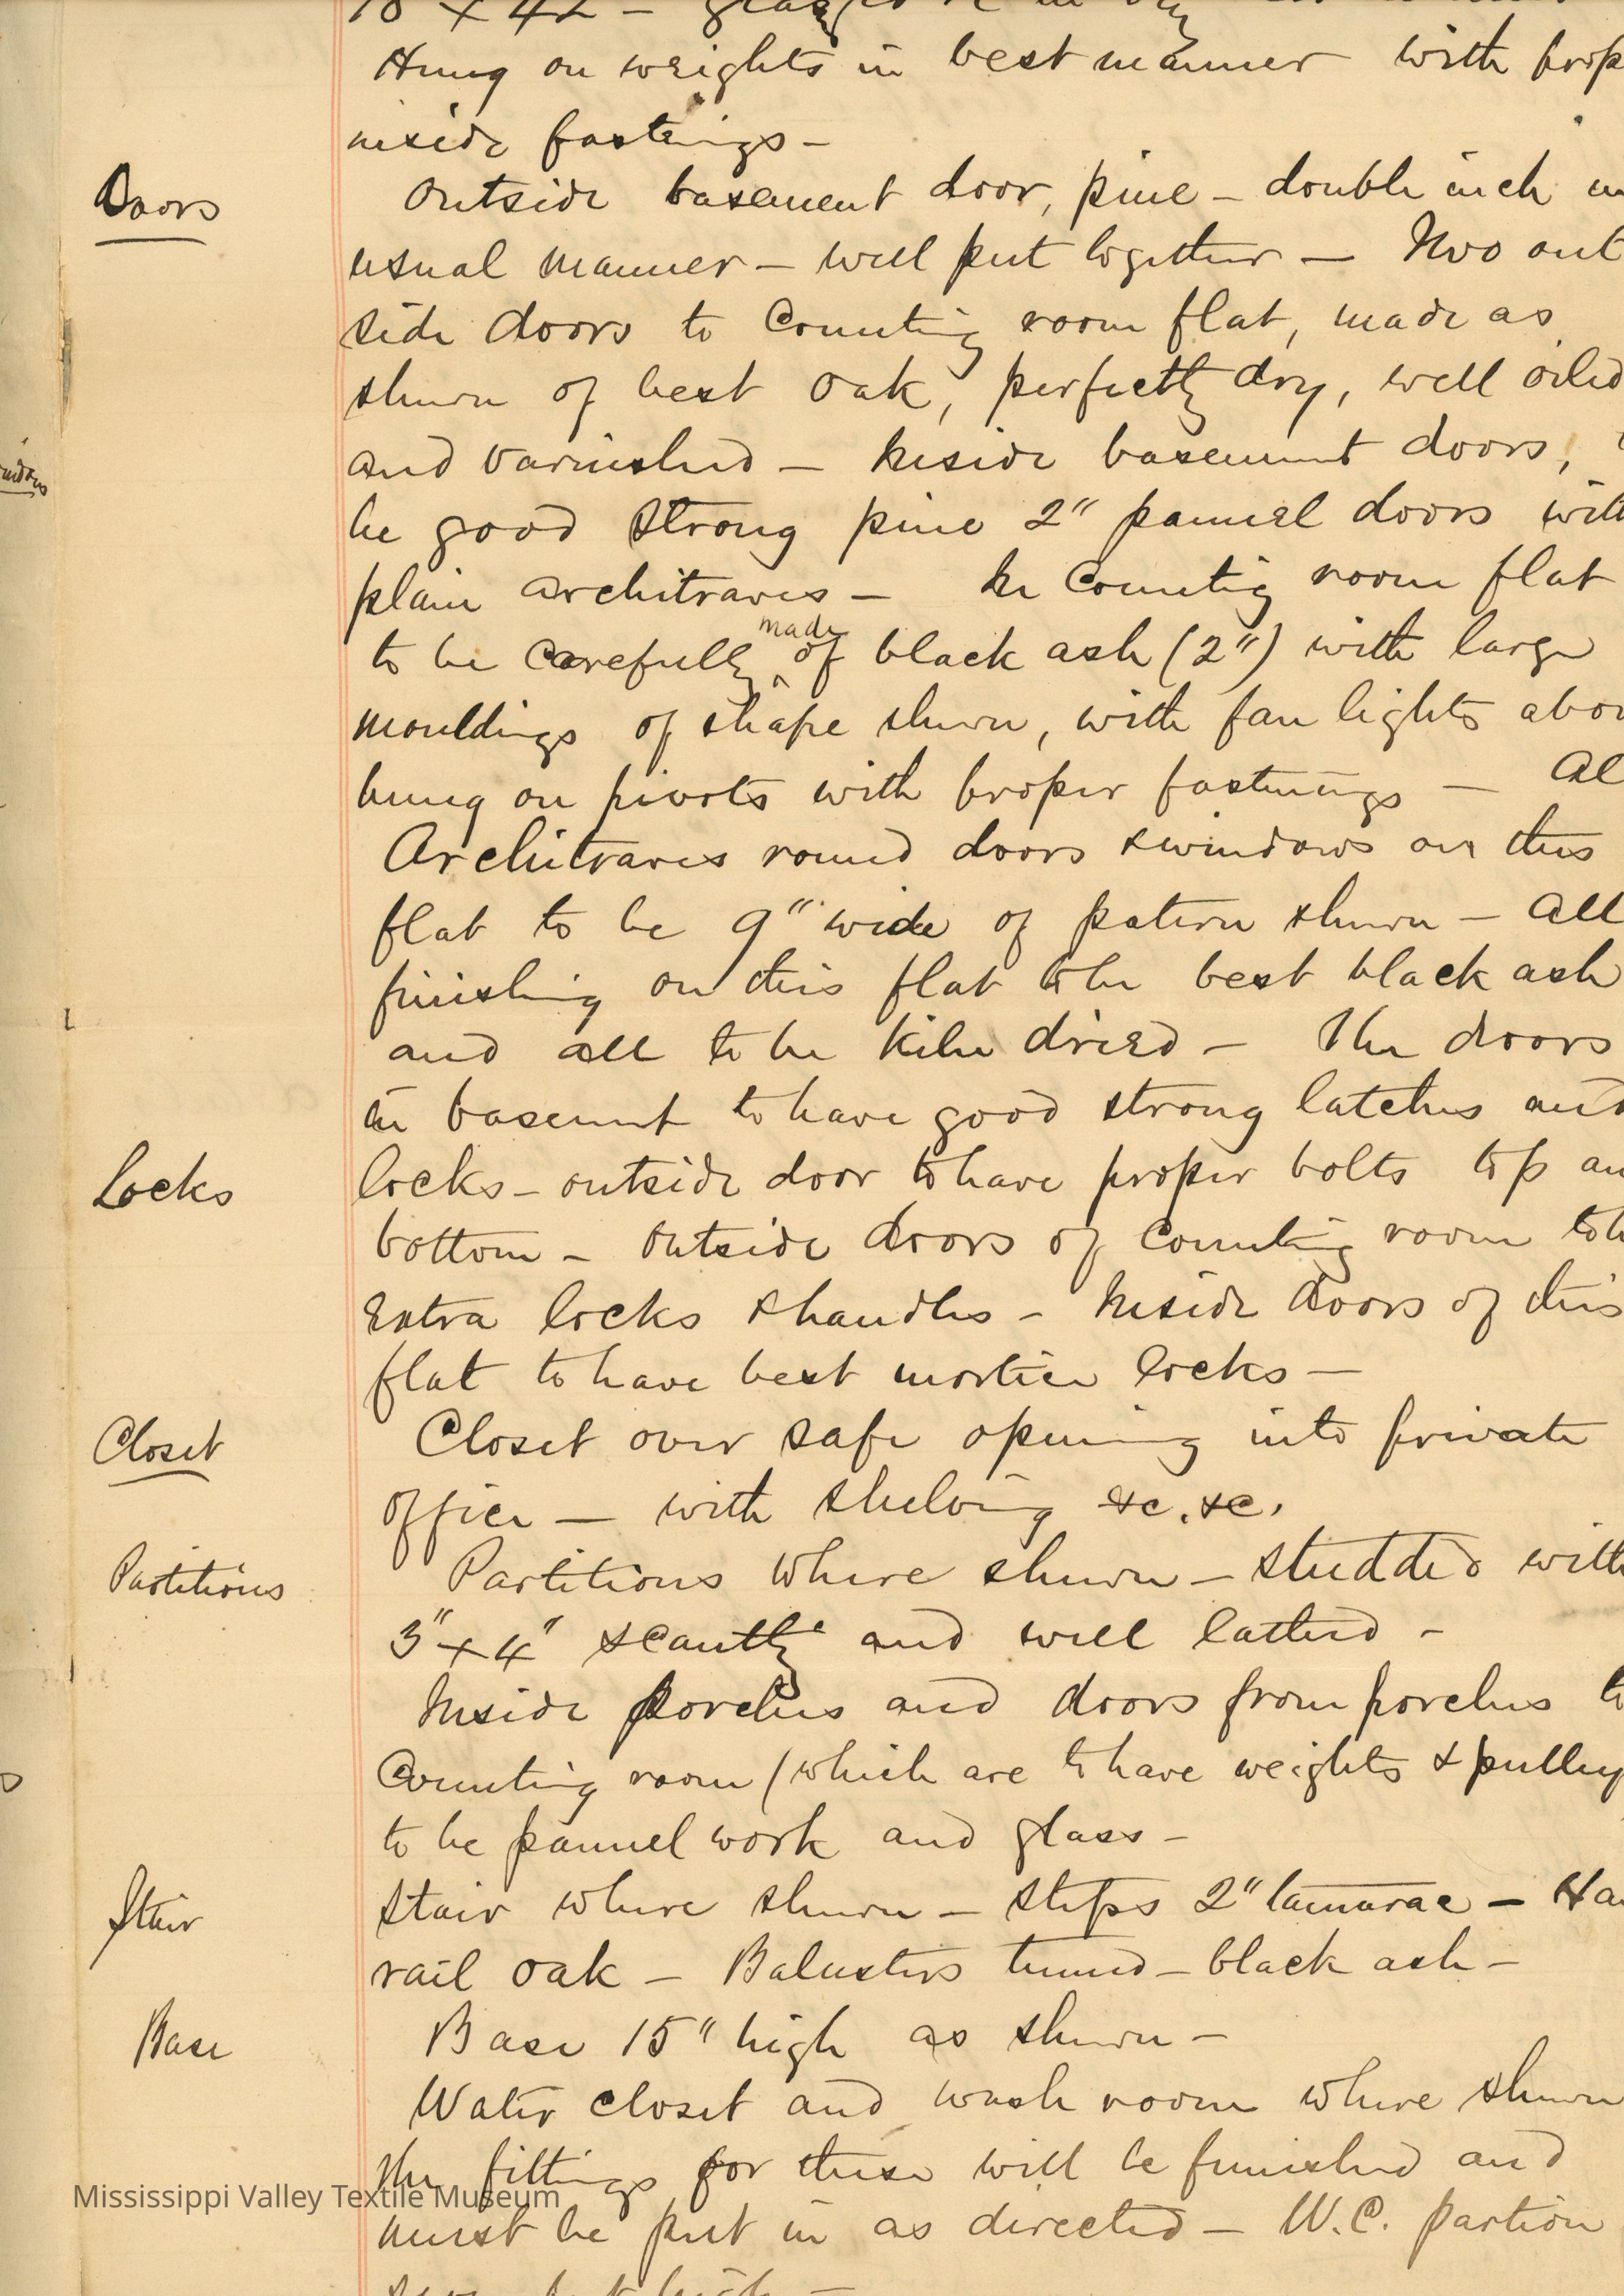 18 x 42 -
Hung on weights in best manner with prop
inside fastings -
Doors
Outside basement door, pine - double inch in
usual manner - well put together - Two out
side doors to Counting room flat, made as
shown of best Oak, perfectly dry, well oiled
and varnished - Inside basement doors,
be good strong pine 2" pannel doors with
plain architraves - In Counting room flat
to be Carefully made of black ash (2") with large
mouldings of shape shown, with fan lights abov
hung on pivots with proper fastnings - Al
Architraves round doors & windows on this
flat to be 9" wide of patern shown - All
finishing on this flat to be best black ash
and all to be Kiln dried - The doors
in basement to have good strong latches and
Locks
locks - outside door to have proper bolts top an
bottom - Outside doors of Counting room to h
Extra locks & handles - Inside doors of this
flat to have best mortice locks -
Closet
Closet over safe opening into private
office - with shelving &c. &c.
Partitions
Partitions where shown - studded with
3" x 4" scantlg and well lathed -
Inside porches and doors from porches to
Counting room (which are to have weights & pulley
to be pannel work and glass -
Stair
Stair where shown - steps 2" tamarac - Ha
rail oak - Balusters turned - black ash -
Base
Base 15" high as shown -
Water closet and wash room where shown
The fittings for these will be furnished and
must be put in as directed - W.C. partion
Mississippi Valley Textile Museum